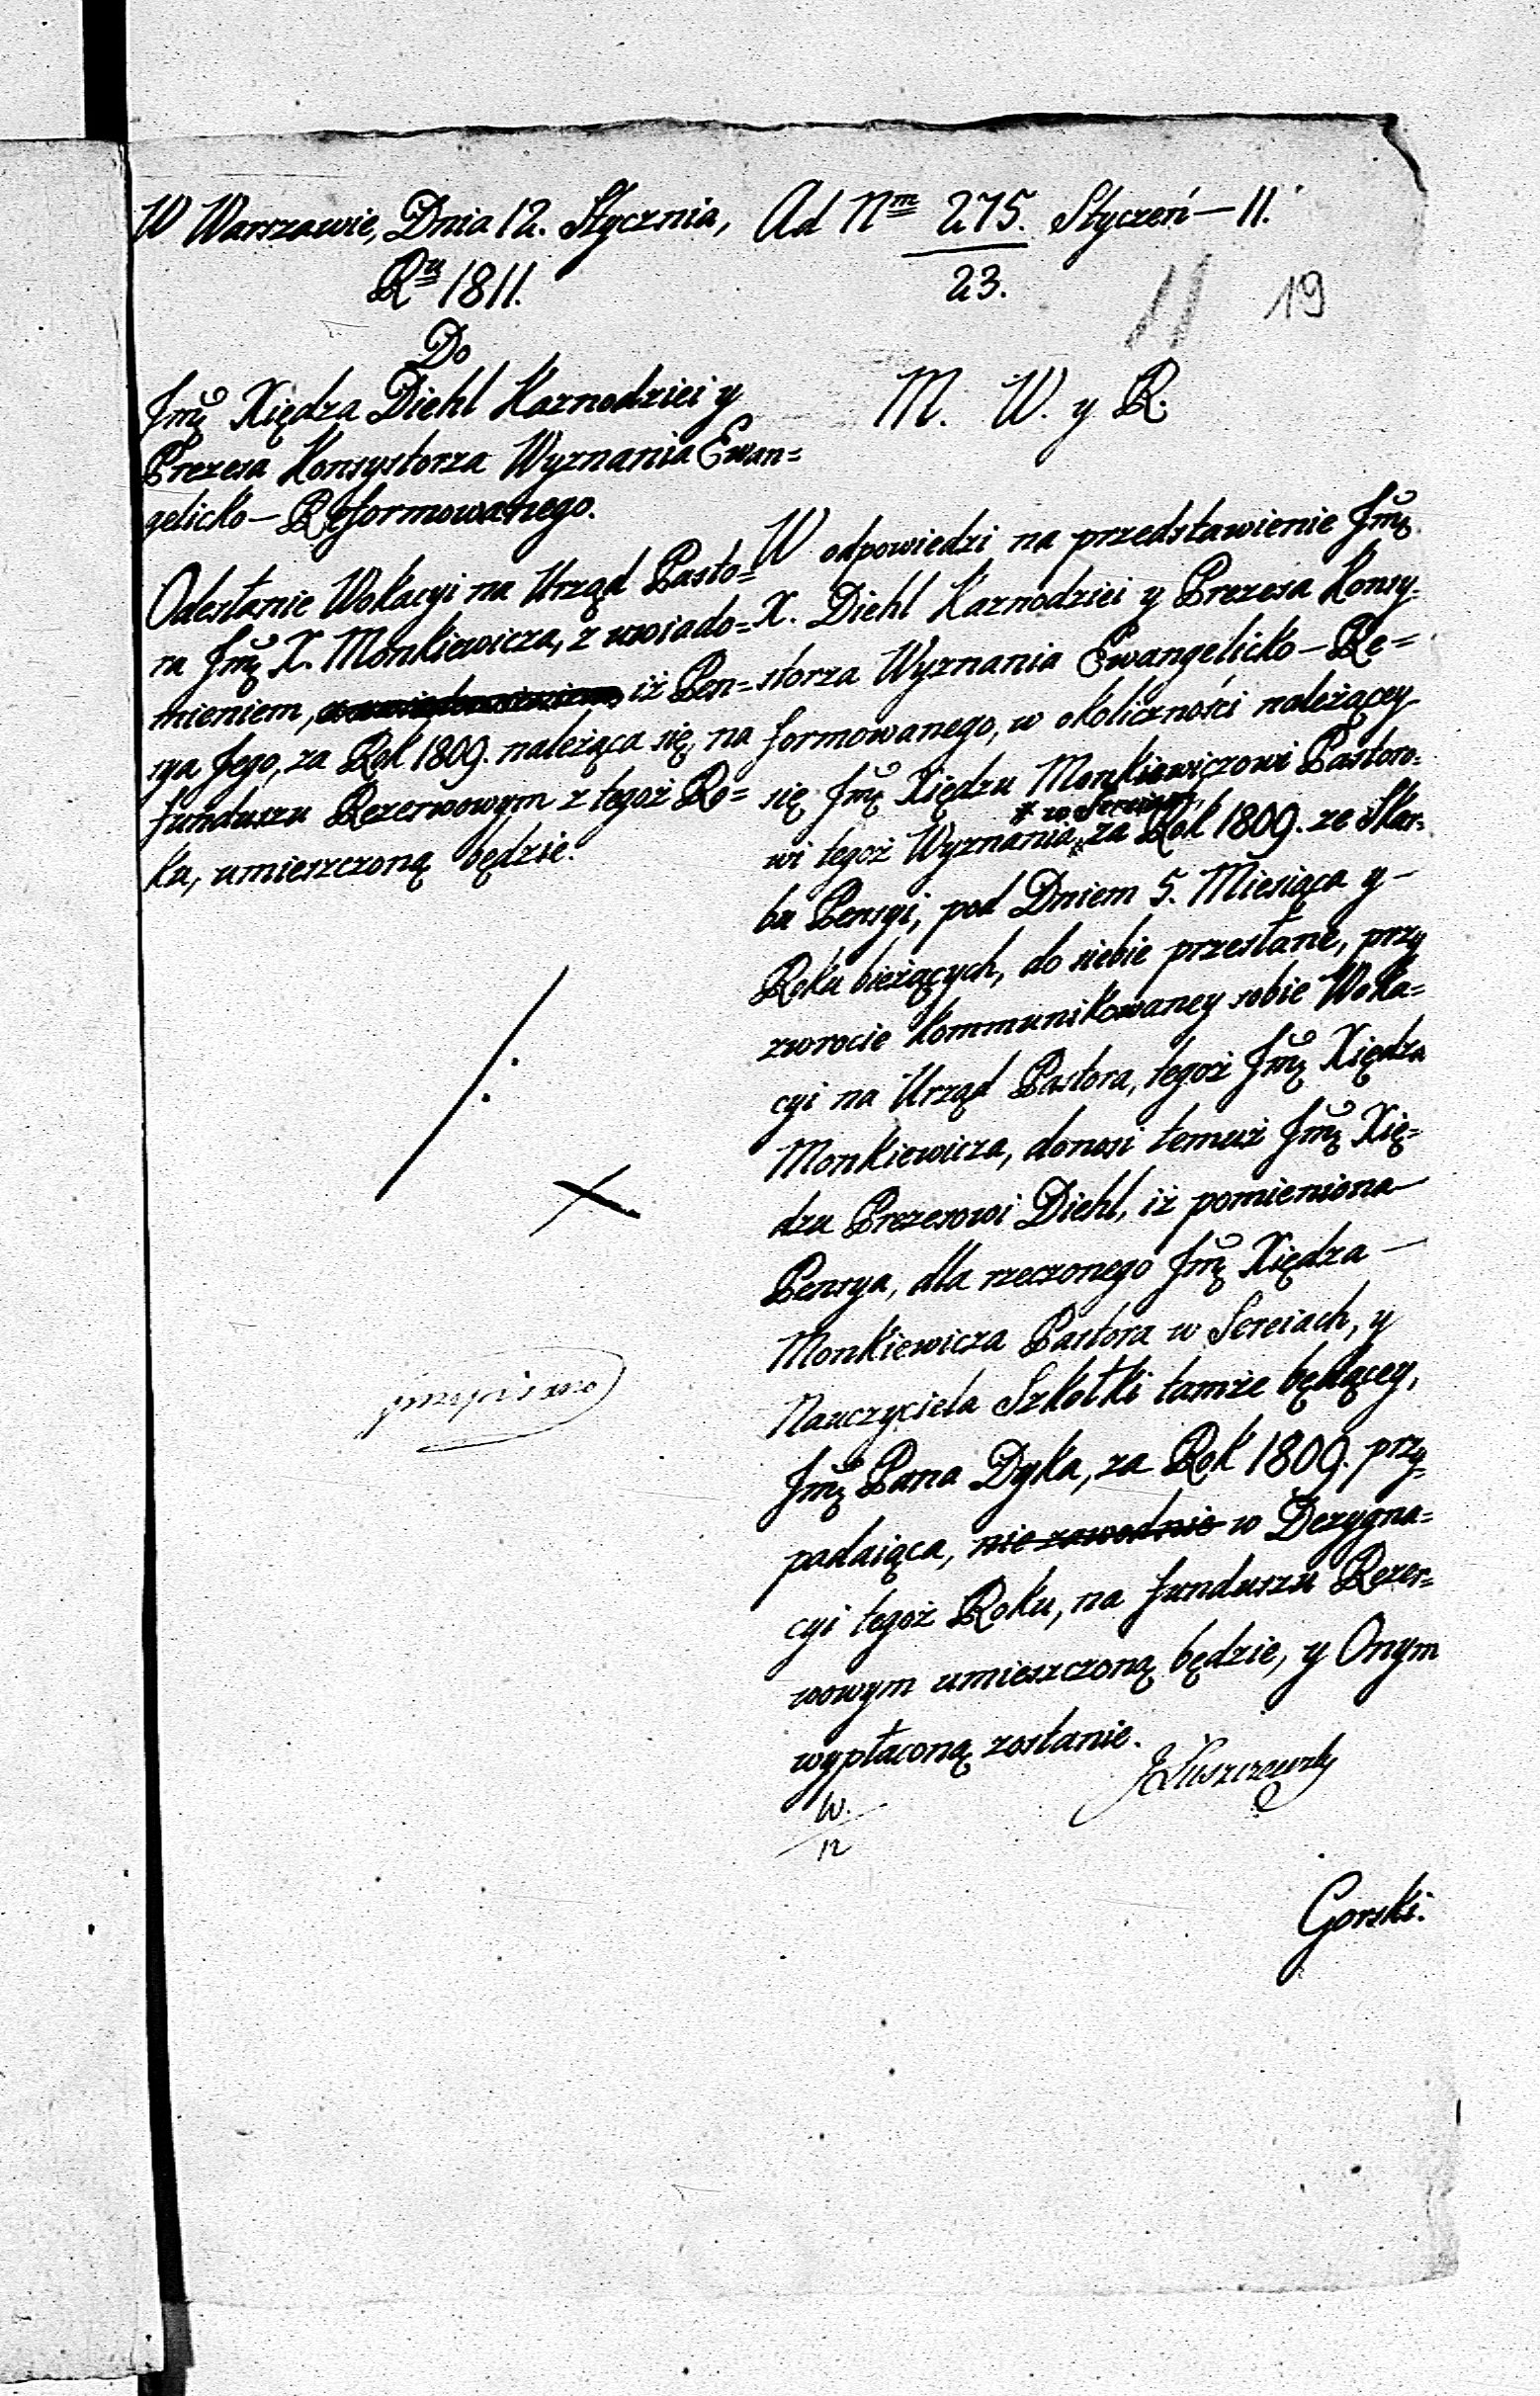 W Warszawie, Dnia 12. Stycznia,
Ru 1811.
Do
Jmę Xiędza Diehl Kaznodziei y
Prezesa Konsystorza Wyznania Ewan=
gelicko-Reformowanego.
Odesłanie Wokacyi na Urząd Pasto=
ra Jmę X. Monkiewicza, z uwiado=
mieniem, iż Pen=
sya Jego, za Rok 1809. należąca się, na
funduszu Rezerwowym z tegoż Ro=
ku, umieszczoną będzie.
przepisano
Ad Nm 275. Styczeń-11.
23.
11 19
M. W. y R.
W odpowiedzi na przedstawienie Jmę
X. Diehl Kaznodziei y Prezesa Konsy=
storza Wyznania Ewangelicko-Re=
formowanego, w okoliczności należącey
się Jmę Xiędzu Monkiewiczowi Pastoro=
# w Sereiach,
wi tegoż Wyznania,# za Rok 1809. ze Skar=
bu Pensyi, pod Dniem 5. Miesiąca y
Roku bieżących, do siebie przesłane, przy
zwrocie kommunikowaney sobie Woka=
cyi na Urząd Pastora, tegoż Jmę Xiędza
Monkiewicza, donosi temuż Jmę Xię=
dzu Prezesowi Diehl, iż pomieniona
Pensya, dla rzeczonego Jmę Xiędza
Monkiewicza Pastora w Sereiach, y
Nauczyciela Szkołki tamże będącey,
Jmę Pana Dyka, za Rok 1809. przy=
padaiąca, nie zawodnie w Dezygna=
cyi tegoż Roku, na funduszu Rezer=
wowym umieszczoną będzie, y Onym
wypłaconą zostanie.
JŁuszczewski
W.
12
Gorski.